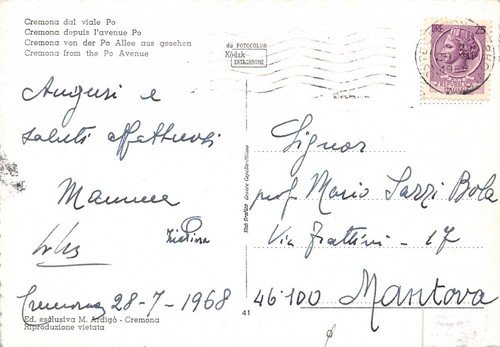 Cremona dal viale Po
Cremona depuis l'avenue Po
Cremona von der Po Allee aus gesehen
Cremona from the Po Avenue
da FOTOCOLOR
Kodak
EKTACHROME
LIRE 25
Auguri e
saluti affettuosi
Cremona 28-7-1968
Ed. esclusiva M. Ardigò - Cremona
Riproduzione vietata
41
Signor
prof. Mario Sarzi Bola
Via Frattini - 17
46100 Mantova